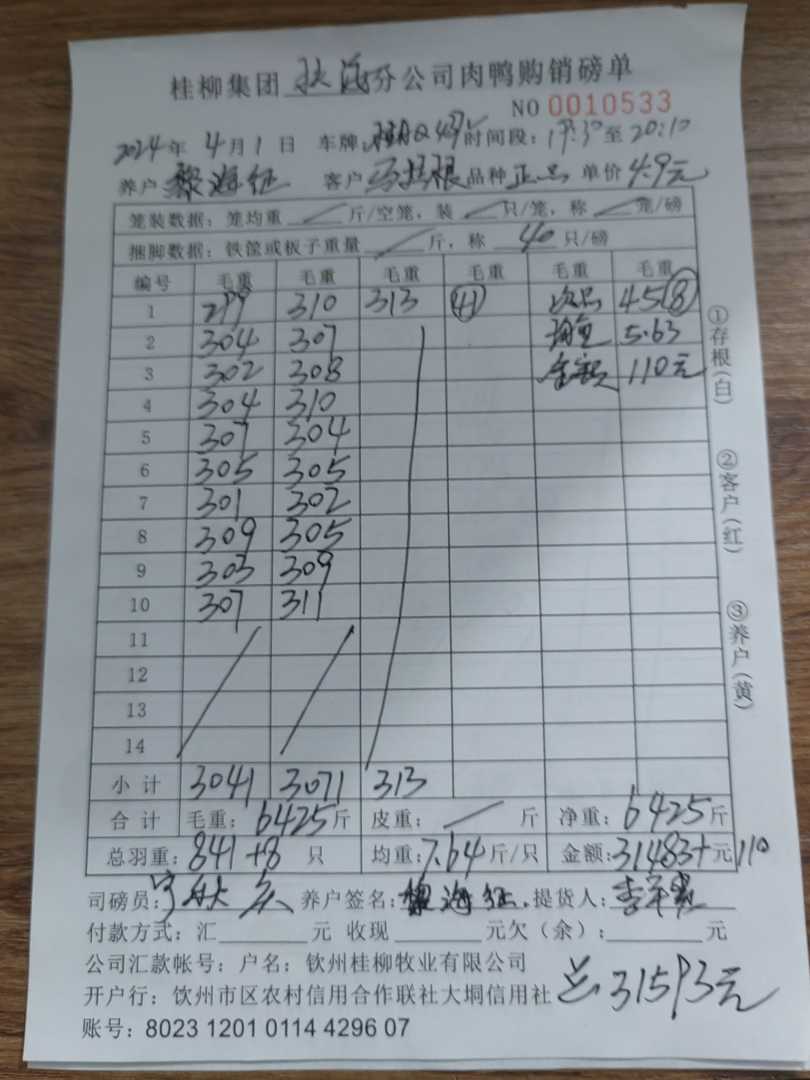 桂柳集团 分公司肉鸭购销磅单
NO 0010533
2024年 4月1日 车牌: 时间段: 17:30至20:10
养户 黎海征 客户 品种 正品 单价 4.9元
笼装数据: 笼均重 斤/空笼, 装 只/笼, 称 笼/磅
捆脚数据: 铁筐或板子重量 斤, 称 40 只/磅
编号 毛重 毛重 毛重 毛重 毛重 毛重
1 299 310 313 41 次品 45 8
2 304 307 5.63
3 302 308 金额 110元
4 304 310
5 307 304
6 305 305
7 301 302
8 309 305
9 303 309
10 307 311
11
12
13
14
小计 3041 3071 313
合计 毛重: 6425斤 皮重: 斤 净重: 6425斤
总羽重: 841+8 只 均重: 7.64斤/只 金额: 31483+元110
司磅员: 养户签名: 黎海征 提货人:
付款方式: 汇 元 收现 元欠(余): 元
公司汇款帐号: 户名: 钦州桂柳牧业有限公司
开户行: 钦州市区农村信用合作联社大垌信用社 总31593元
账号: 8023 1201 0114 4296 07
①存根(白)
②客户(红)
③养户(黄)